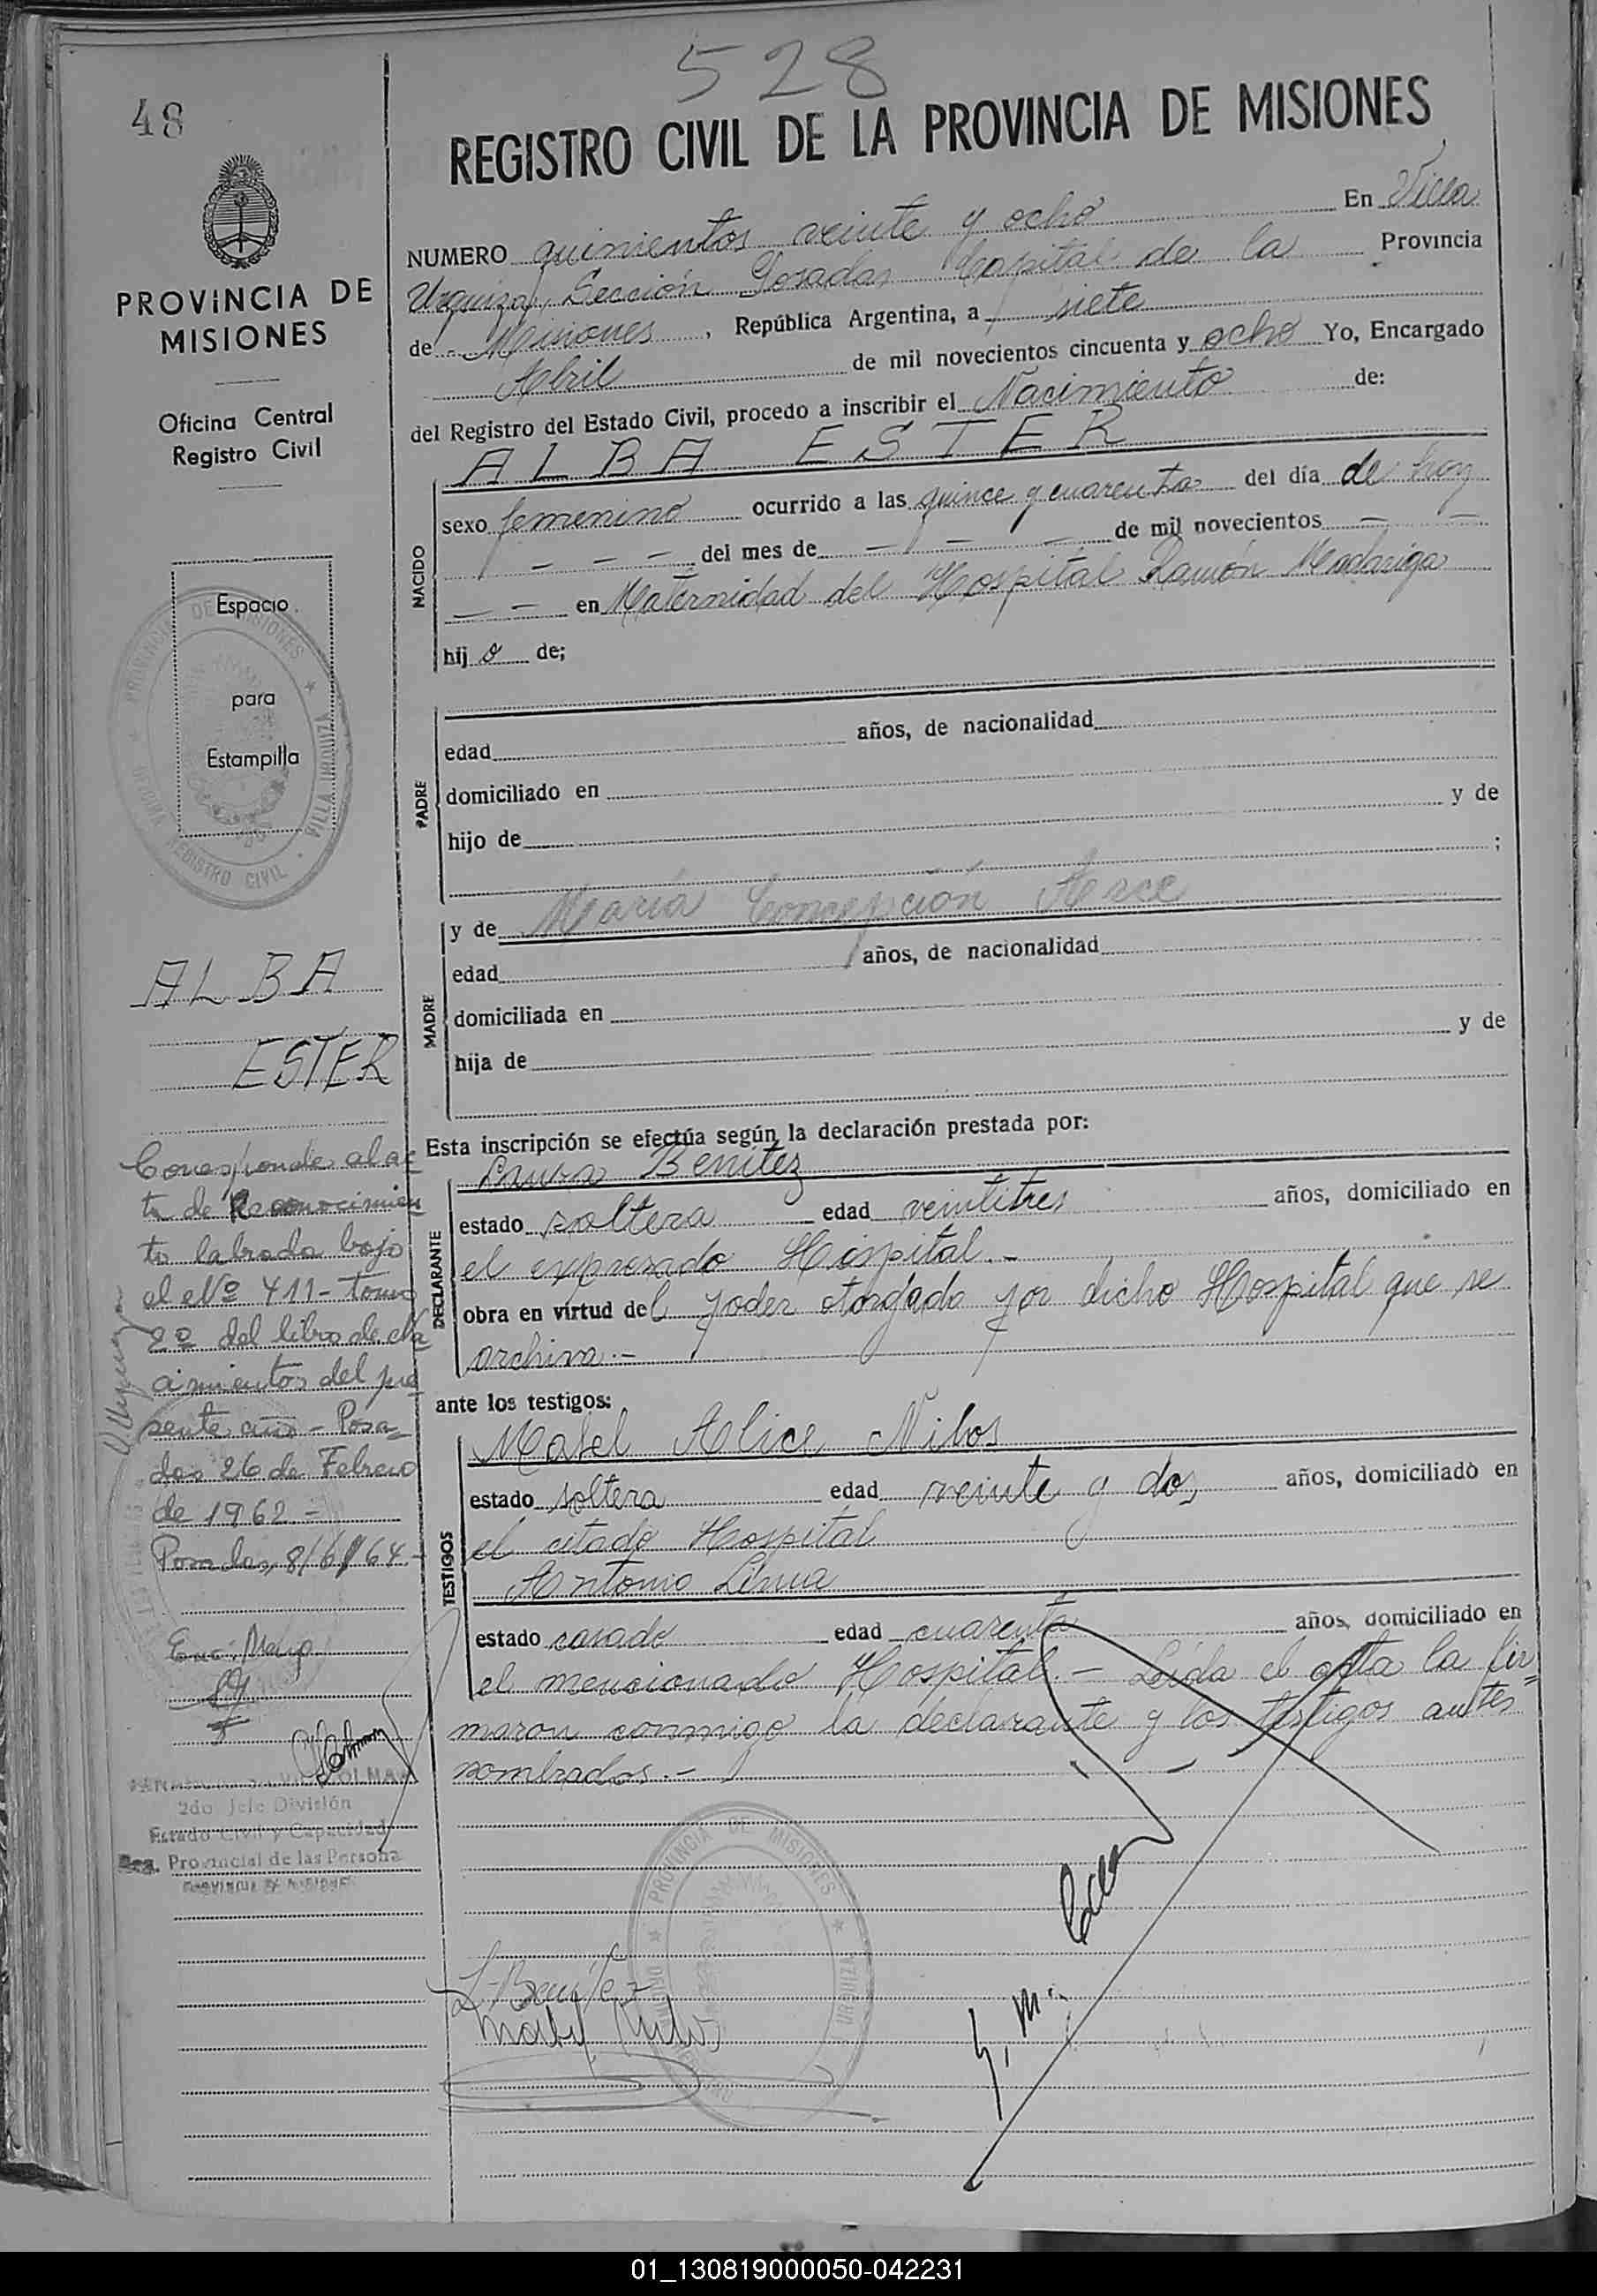 528
48
REGISTRO CIVIL DE LA PROVINCIA DE MISIONES
PROVINCIA DE
MISIONES
Oficina Central
Registro Civil
Espacio
para
Estampilla
PROVINCIA DE MISIONES
VILLA URQUIZA
REGISTRO CIVIL
ALBA
ESTER
Corresponde al ac
ta de Reconocimien
to labrada bajo
el Nº 411 - tomo
2º del libro de Na
cimientos del pre
sente año - Posa=
das 26 de Febrero
de 1962 -
Posadas, 8/6/64 -
2do Jefe División
Estado Civil y Capacidad
Reg. Provincial de las Persona
PROVINCIA DE MISIONES
NUMERO quinientos veinte y ocho En Villa
Urquiza, Sección Posadas Capital de la Provincia
de Misiones, República Argentina, a siete
Abril de mil novecientos cincuenta y ocho Yo, Encargado
del Registro del Estado Civil, procedo a inscribir el Nacimiento de:
ALBA ESTER
NACIDO
sexo femenino ocurrido a las quince y cuarenta del día de hoy
- - - del mes de - - - de mil novecientos - -
- - en Maternidad del Hospital Ramón Madariga
hij o de;
PADRE
edad años, de nacionalidad
domiciliado en
hijo de y de
;
MADRE
y de María Concepción Arce
edad años, de nacionalidad
domiciliada en
hija de y de
Esta inscripción se efectúa según la declaración prestada por:
DECLARANTE
Laura Benitez
estado soltera edad veintitres años, domiciliado en
el expresado Hospital.-
obra en virtud del poder otorgado por dicho Hospital que se
archiva.-
ante los testigos:
TESTIGOS
Mabel Alice Nibos
estado soltera edad veinte y dos años, domiciliado en
el citado Hospital
Antonio Lima
estado casado edad cuarenta años, domiciliado en
el mencionado Hospital.- Leída el acta la fir=
maron conmigo la declarante y los testigos antes
nombrados.-
PROVINCIA DE MISIONES
URQUIZA
L. Benítez
01_130819000050-042231